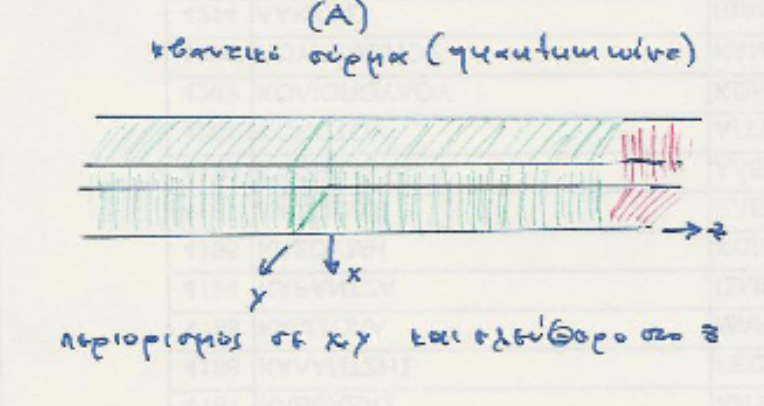 (A)
κβαντικό σύρμα (quantum wire)
z
x
y
περιορισμός σε x,y και ελεύθερο στο z